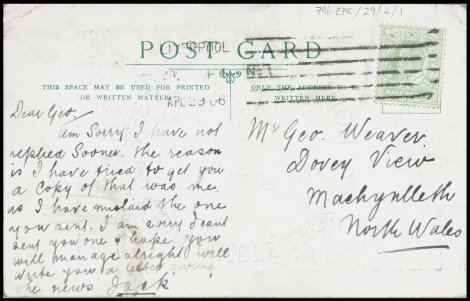 796 EPC/29/4/1
LIVERPOOL
POST CARD
No 1.
THIS SPACE MAY BE USED FOR PRINTED
OR WRITTEN MATTER.
ONLY THE ADDRESS TO BE
WRITTEN HERE.
APL 29 06
Dear Geo.
Am Sorry I have not
replied Sooner. the reason
is I have tried to get you
a copy of that was me.
as I have mislaid the one
you sent. I am sorry I cant
sent you one & hope you
will manage alright will
write you a letter giving
the news Jack
Mr Geo. Weaver.
Dovey View
Machynlleth
North Wales